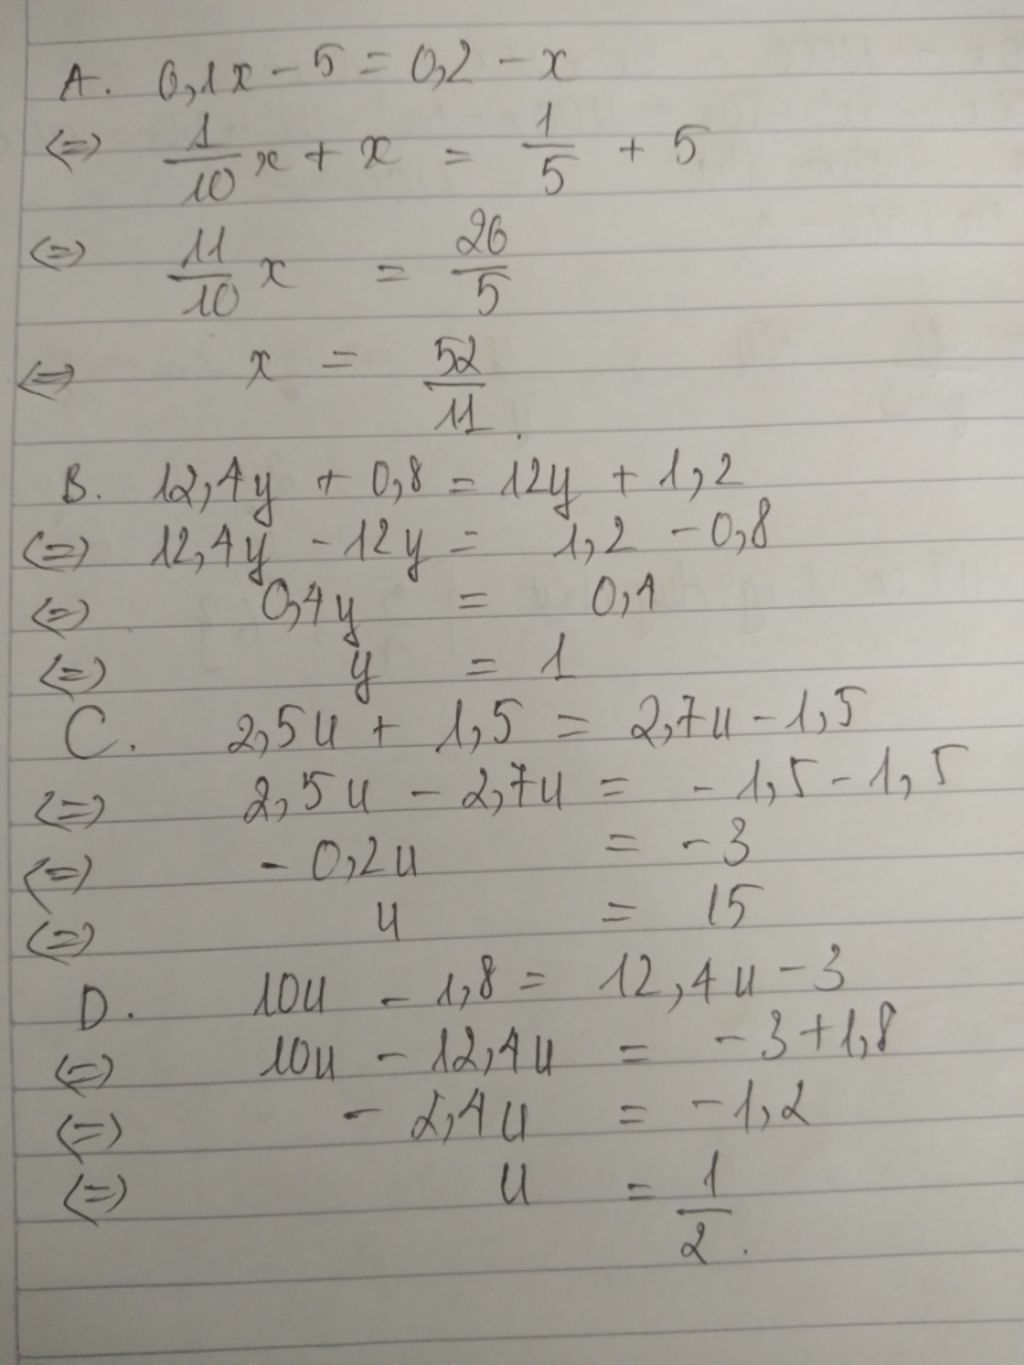 A. 0,1x - 5 = 0,2 - x
(=) 1/10 x + x = 1/5 + 5
(=) 11/10 x = 26/5
(=) x = 52/11.
B. 12,4y + 0,8 = 12y + 1,2
(=) 12,4y - 12y = 1,2 - 0,8
(=) 0,4y = 0,4
(=) y = 1
C. 2,5u + 1,5 = 2,7u - 1,5
(=) 2,5u - 2,7u = - 1,5 - 1,5
(=) - 0,2u = - 3
(=) u = 15
D. 10u - 1,8 = 12,4u - 3
(=) 10u - 12,4u = - 3 + 1,8
(=) - 2,4u = - 1,2
(=) u = 1/2.